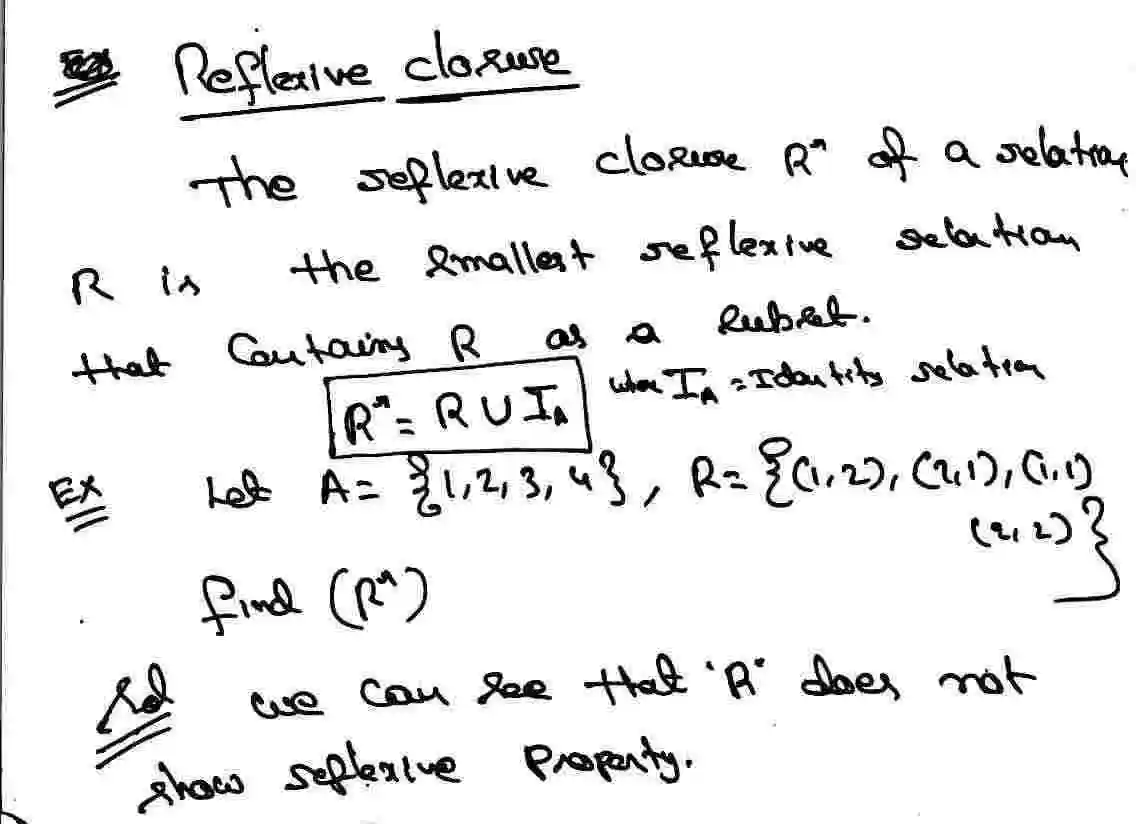 Reflexive closure
The reflexive closure Rʳ of a relation
R is the smallest reflexive relation
that Contains R as a subset.
Rʳ = R ∪ I_A where I_A = Identity relation
Ex Let A = {1, 2, 3, 4}, R = {(1,2), (2,1), (1,1)
(2,2)}
find (Rʳ)
Sol we can see that 'R' does not
show reflexive Property.